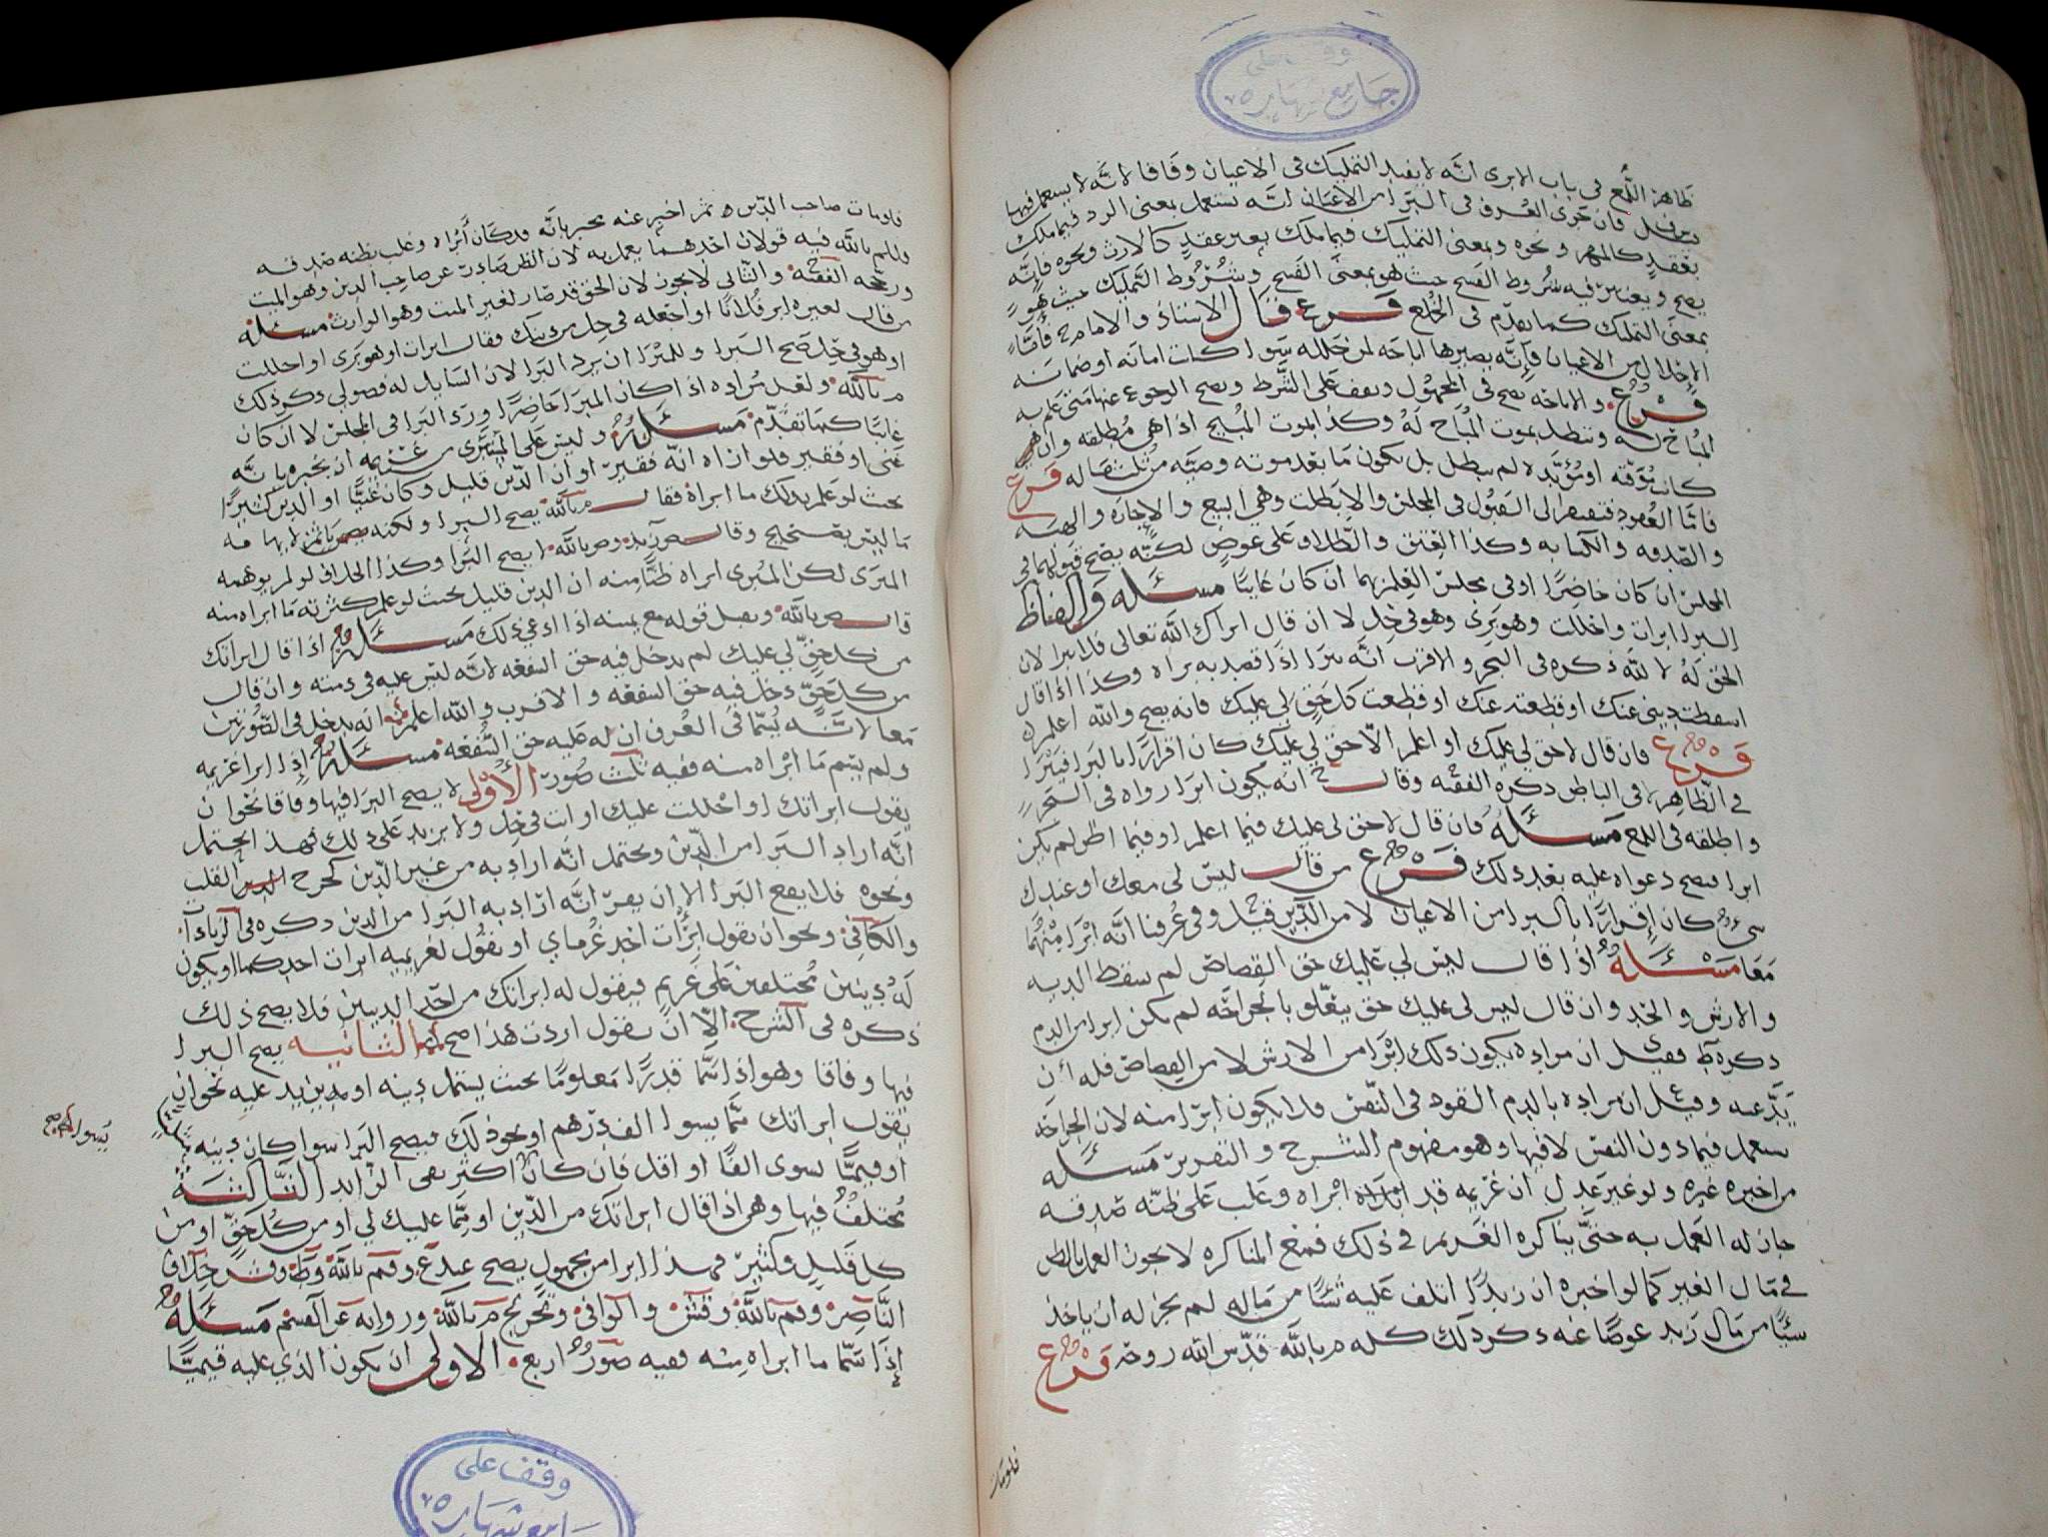 وقف على
جامع شهاره
ظاهر اللمع في باب الابرى انه لا يفيد التمليك في الاعيان وفاقا لانه لا يستعمل فيها
فان جرى العرف في البرا من الاعيان انه يستعمل بمعنى الرد فيما ملك
بعقد كالمهر ونحوه وبمعنى التمليك فيما ملك بغير عقد كالارث ونحوه فانه
يصح ويعتبر فيه شروط الفسخ حيث هو بمعنى الفسخ وشروط التمليك حيث هو
بمعنى التمليك كما تقدم في الخلع فرع قال الاستاذ والامام ح فاما
الاحلال من الاعيان فانه يصيرها اباحه لمن حلله سوا كانت امانه او ضمانه
فرع والاباحه تصح في المجهول وتقف على الشرط ويصح الرجوع عنها متى علم به
المباح له وتبطل بموت المباح له وكذا بموت المبيح اذا هي مطلقه وان
كانت موقته او مؤبده لم تبطل بل يكون ما بعد موته وصيه من ثلث ماله فرع
فاما العقود فتفتقر الى القبول في المجلس والا بطلت وهي البيع والاجاره والهبه
والصدقه والكتابه وكذا العتق والطلاق على عوض لكنه يصح قبولهما في
المجلس ان كان حاضرا او في مجلس العلم بهما ان كان غايبا مسئله والفاظ
البرا ابرات واحللت وهو بري وهو في حل لا ان قال ابراك الله تعالى فلا يبرا لان
الحق له لا لله ذكره في البحر والاقرب انه يبرا اذا قصد به براه وكذا اذا قال
اسقطت ديني عنك او قطعته عنك او قطعت كل حق لي عليك فانه يصح والله اعلم
فرع فان قال لا حق لي عليك او اعلم الا حق لي عليك كان اقرارا بالبرا فيبرا
في الظاهر لا في الباطن ذكره الفقيه وقال انه يكون ابرا رواه في الشرح
واطلقه في اللمع مسئله فان قال لا حق لي عليك فيما اعلم او فيما اظن لم يكن
ابرا فيصح دعواه عليه بعد ذلك فرع من قال ليس لي معك او عندك
شيء كان اقرارا بالبرا من الاعيان لا من الدين قيل وفي عرفنا انه ابرا منهما
معا مسئله اذا قال ليس لي عليك حق القصاص لم تسقط الديه
والارش والخبر وان قال ليس لي عليك حق يتعلق بالجراحه لم يكن ابرا من الدم
ذكره ط فقيل ان مراده يكون ذلك ابرا من الارش لا من القصاص فله ان
يدعيه وقيل ان مراده بالدم القود في النفس فلا يكون ابرا منه لان الجراحه
تستعمل فيما دون النفس لا فيها وهو مفهوم الشرح والتقرير مسئله
من اخبره غيره ولو غير عدل ان غريمه قد ابراه وغلب على ظنه صدقه
جاز له العمل به حتى يناكره الغريم في ذلك فمع المناكره لا يجوز العمل بالظن
في مال الغير كما لو اخبره ان زيدا اتلف عليه شيئا من ماله لم يجز له ان ياخذ
شيئا من مال زيد عوضا عنه ذكر ذلك كله م بالله قدس الله روحه فرع
فلو مات
فلو مات صاحب الدين ثم اخبر عنه مخبر بانه قد كان ابراه وغلب بظنه صدقه
وللم بالله فيه قولان احدهما يعمل به لان الظن صادر عن صاحب الدين وهو الميت
ورجحه الفقيه والثاني لا يجوز لان الحق قد صار لغير الميت وهو الوارث مسئله
من قال لغيره ابر فلانا او اجعله في حل من دينك فقال ابرات او هو بري او احللت
او هو في حل صح البرا وللمبرا ان يرد البرا لان السايل له فضولي ذكر ذلك
م بالله ولعل مراده اذا كان المبرا حاضرا ورد البرا في المجلس لا ان كان
غايبا كما تقدم مسئله وليس على المستبري من غريمه ان يخبره بانه
غني او فقير فلو اراه انه فقير او ان الدين قليل وكان غنيا او الدين كثيرا
بحيث لو علم بذلك ما ابراه فقال م بالله يصح البرا ولكنه
ما ليس بقبيح وقال ص زيد وص بالله لا يصح البرا وكذا الخلاف لو لم يوهمه
المبرى لكن المبرى ابراه ظنا منه ان الدين قليل بحيث لو علم كثرته ما ابراه منه
قال ص بالله ويقبل قوله مع يمينه اذا ادعى ذلك مسئله اذا قال ابراتك
من كل حق لي عليك لم يدخل فيه حق الشفعه لانه ليس عليه في ذمته وان قال
من كل حق دخل فيه حق الشفعه والاقرب والله اعلم انه يدخل في الصورتين
معا لانه يسما في العرف ان له عليه حق الشفعه مسئله اذا ابرا غريمه
ولم يسم ما ابراه منه ففيه ثلث صور الاولى لا يصح البرا فيها وفاقا نحو ان
يقول ابراتك او احللت عليك او انت في حل ولا يزيد على ذلك فهذا يحتمل
انه اراد البرا من الدين ويحتمل انه اراد به من غير الدين كجرح القلب
ونحوه فلا يقع البرا الا ان يقر انه اراد به البرا من الدين ذكره في الزيادات
والكافي ونحو ان يقول ابرات احد غرماي او يقول لغريميه ابرات احدكما او يكون
له دينين مختلفين على غريم فيقول له ابراتك من احد الدينين فلا يصح ذلك
ذكره في الشرح الا ان يقول اردت هذا صح الثانيه يصح البرا
فيها وفاقا وهو اذا سما قدرا معلوما بحيث يشتمل دينه او يزيد عليه نحو ان
يقول ابراتك مما يسوا الف درهم او نحو ذلك فيصح البرا سوا كان دينه
او قيميا يسوى الفا او اقل فان كان اكثر بقي الزايد الثالثه
مختلف فيها وهي اذا قال ابراتك من الدين او مما عليك لي او من كل حق او من
كل قليل وكثير فهذا ابرا من مجهول يصح عند ع وقم بالله وط وش خلاف
الناصر وقم بالله وقش والوافي وتخريج م بالله وروايه عن القسم مسئله
اذا سما ما ابراه منه ففيه صور اربع الاولى ان يكون الذي عليه قيميا
وقف على
جامع شهاره